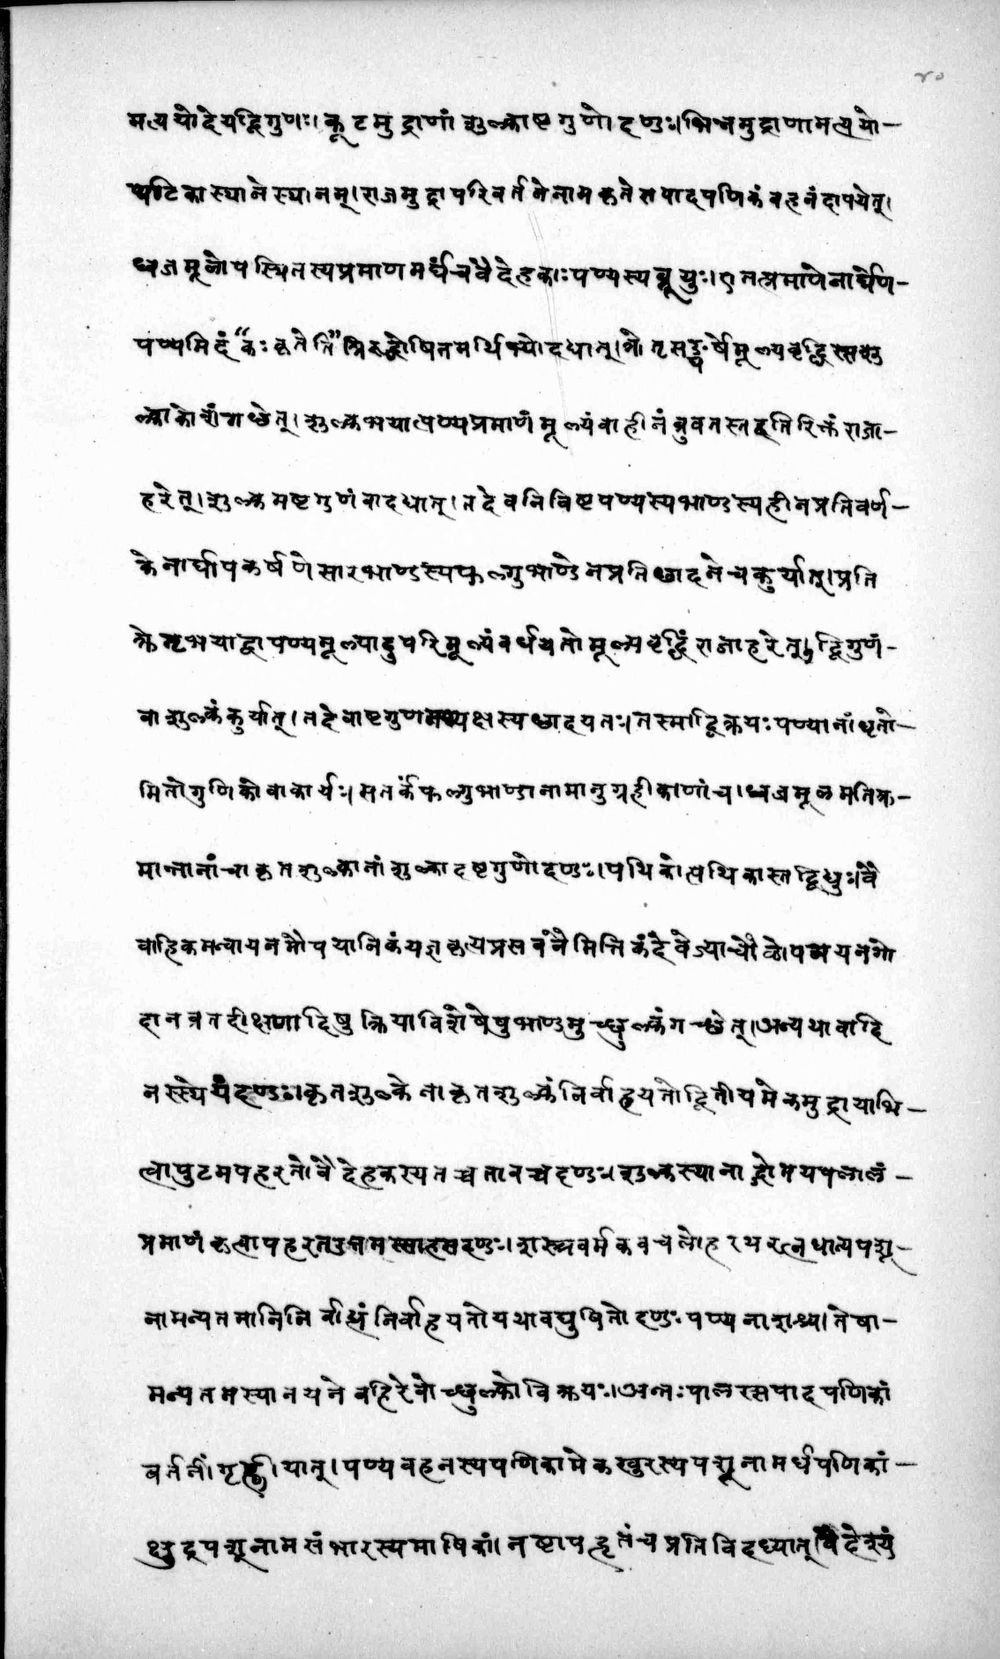 ४०
मत्ययो देयद्विगुणः। कूटमुद्राणां शुल्काष्टगुणो दण्डः। भिन्नमुद्राणामत्ययो—
घटिकास्थाने स्थानम्। राजमुद्रापरिवर्तने नामकृते सपादपणिकं वहनं दापयेत्।
ध्वजमूलोपस्थितस्य प्रमाणमर्घं च वैदेहकाः पण्यस्य ब्रूयुः। एतत्प्रमाणेनार्घेण—
पण्यमिदं "कः क्रेतेति" त्रिरुद्घोषितमर्थिभ्यो दद्यात्। क्रेतृसङ्घर्षे मूल्यवृद्धिस्सशु
ल्का कोशं गच्छेत्। शुल्कभयात्पण्यप्रमाणं मूल्यं वा हीनं ब्रुवतस्तदतिरिक्तं राजा—
हरेत्। शुल्कमष्टगुणं वा दद्यात्। तदेव निविष्टपण्यस्य भाण्डस्य हीनप्रतिवर्ण—
केनार्घापकर्षणे सारभाण्डस्य फल्गुभाण्डेन प्रतिच्छादने च कुर्यात्। प्रति
क्रेतृभयाद्वा पण्यमूल्यादुपरि मूल्यं वर्धयतो मूल्यवृद्धिं राजा हरेत्। द्विगुणं—
वा शुल्कं कुर्यात्। तदेवाष्टगुणमध्यक्षस्य छादयतः। तस्माद्विक्रयः पण्यानां धृतो—
मितो गुणिको वा कार्यः। सतर्कः फल्गुभाण्डानामानुग्रहीकाणां च। ध्वजमूलमतिक्र—
मान्तानां चाकृतशुल्कानां शुल्कादष्टगुणो दण्डः। पथिकोत्पथिकास्तद्विद्युः। वै
वाहिकमन्वायनमौपयानिकं यज्ञकृत्यप्रसवनैमित्तिकं देवेज्याचौळोपनयनगो
दानव्रतदीक्षणादिषु क्रियाविशेषेषु भाण्डमुच्छुल्कं गच्छेत्। अन्यथावादि
नस्स्तेयदण्डः। कृतशुल्केनाकृतशुल्कं निर्वाहयतो द्वितीयमेकमुद्रया भि—
त्वा पुटमपहरतो वैदेहकस्य तच्च तावच्च दण्डः। शुल्कस्थानाद्गोमयपलालं—
प्रमाणं कृत्वापहरत उत्तमस्साहसदण्डः। शस्त्रवर्मकवचलोहरथरत्नधान्यपशू—
नामन्यतमानिनिर्वाह्यं निर्वाहयतो यथावघुषितो दण्डः पण्यनाशश्च। तेषा—
मन्यतमस्यानयने बहिरेवोच्छुल्को विक्रयः। अन्तःपालस्सपादपणिकां
वर्तनीं गृह्णीयात्। पण्यवहनस्य पणिकामेकखुरस्य पशूनामर्धपणिकां—
क्षुद्रपशूनामसंभारस्य माषिकां। नष्टापहृतं च प्रतिविदध्यात्। वैदेश्यं